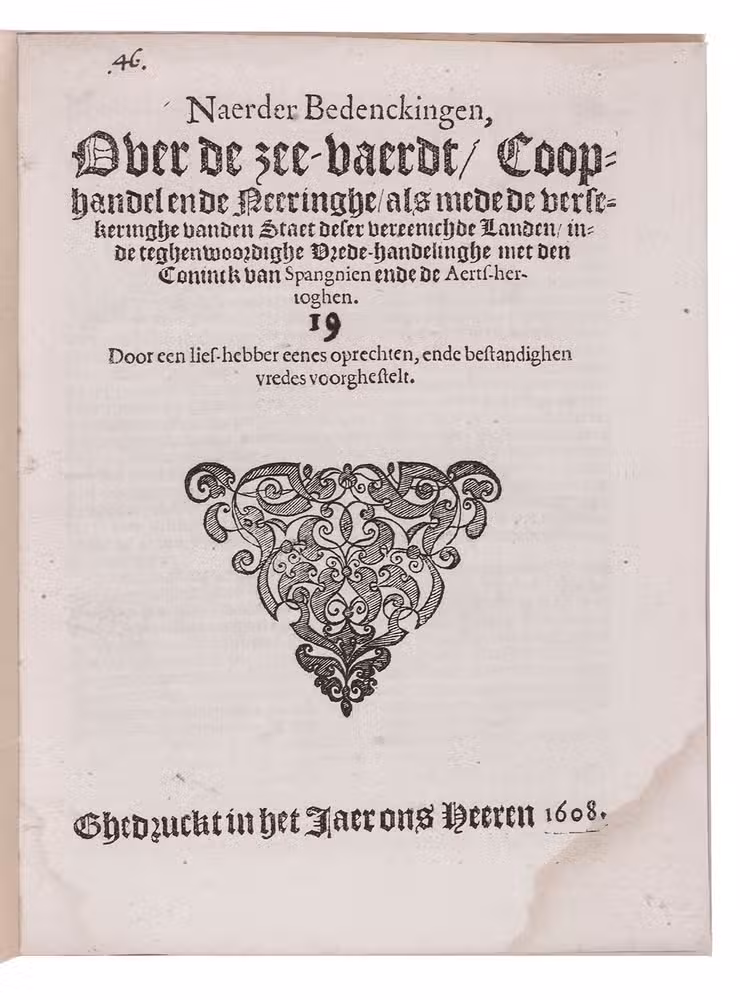 46.
Naerder Bedenckingen,
Over de zee-vaerdt/ Coop-
handel ende Neeringhe/als mede de verse-
keringhe vanden Staet deser vereenichde Landen/ in-
de teghenwoordighe Vrede-handelinghe met den
Coninck van Spangnien ende de Aertſ-her-
toghen.
19
Door een lieſ-hebber eenes oprechten, ende beſtandighen
vredes voorgheſtelt.
Ghedruckt in het Jaer ons Heeren 1608.